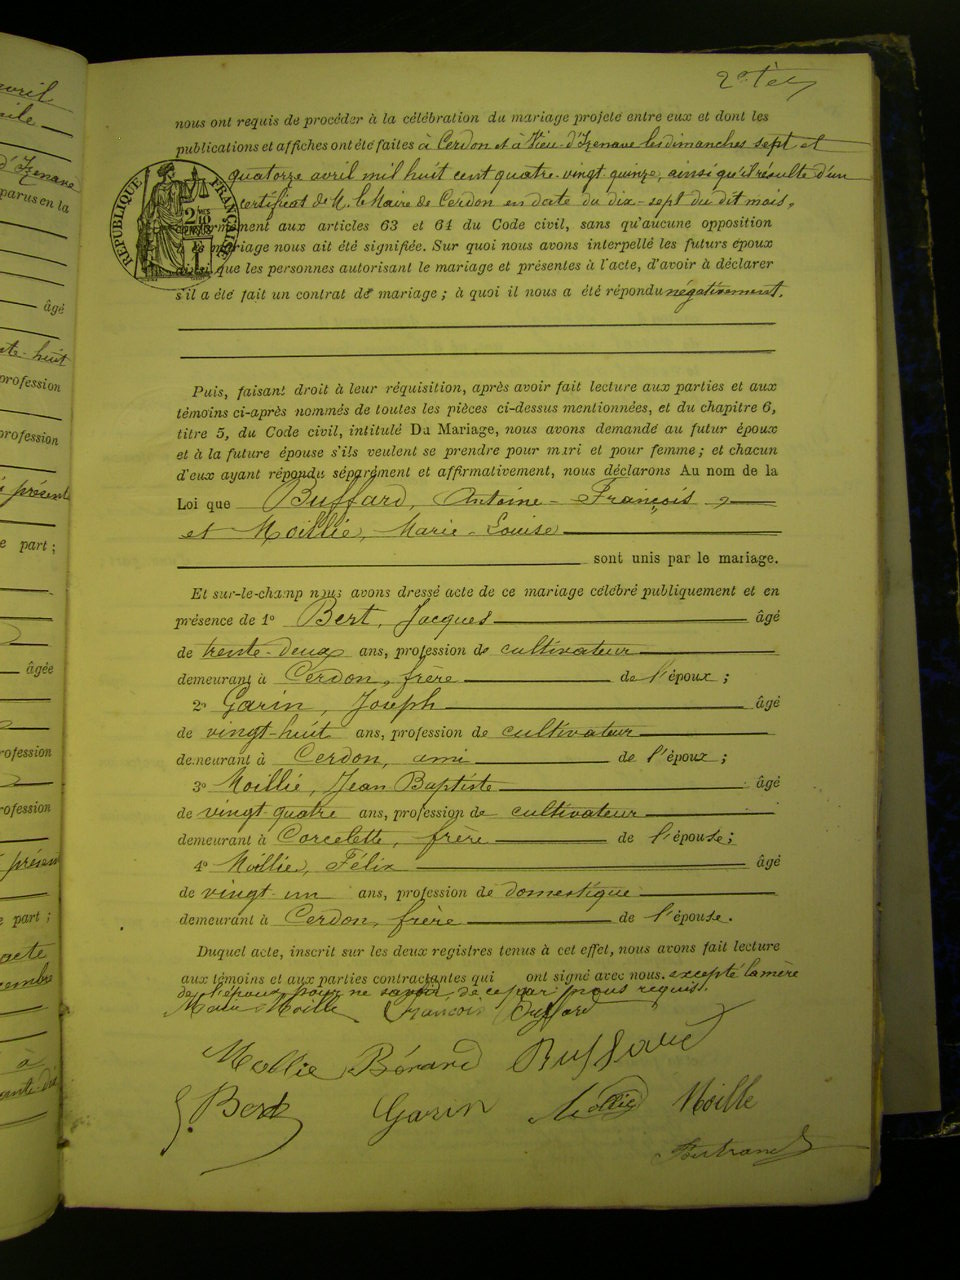 nous ont requis de procéder à la célébration du mariage projeté entre eux et dont les
publications et affiches ont été faites à Cerdon et à Vieu-d'Izenave les dimanches sept et
quatorze avril mil huit cent quatre-vingt quinze, ainsi qu'il résulte d'un
certificat de M. le Maire de Cerdon en date du dix-sept du dit mois,
RÉPUBLIQUE FRANÇAISE
2 MES 10
EN SUS
ment aux articles 63 et 64 du Code civil, sans qu'aucune opposition
riage nous ait été signifiée. Sur quoi nous avons interpellé les futurs époux
que les personnes autorisant le mariage et présentes à l'acte, d'avoir à déclarer
s'il a été fait un contrat de mariage ; à quoi il nous a été répondu négativement.
Puis, faisant droit à leur réquisition, après avoir fait lecture aux parties et aux
témoins ci-après nommés de toutes les pièces ci-dessus mentionnées, et du chapitre 6,
titre 5, du Code civil, intitulé Du Mariage, nous avons demandé au futur époux
et à la future épouse s'ils veulent se prendre pour mari et pour femme ; et chacun
d'eux ayant répondu séparément et affirmativement, nous déclarons Au nom de la
Loi que Buffard, Antoine-François,
et Moillié, Marie-Louise
sont unis par le mariage.
Et sur-le-champ nous avons dressé acte de ce mariage célébré publiquement et en
présence de 1° Bert, Jacques âgé
de trente-deux ans, profession de cultivateur
demeurant à Cerdon, frère de l'époux ;
2° Garin, Joseph âgé
de vingt-huit ans, profession de cultivateur
demeurant à Cerdon, ami de l'époux ;
3° Moillié, Jean Baptiste âgé
de vingt-quatre ans, profession de cultivateur
demeurant à Corcelette, frère de l'épouse ;
4° Moillié, Félix âgé
de vingt-un ans, profession de domestique
demeurant à Cerdon, frère de l'épouse.
Duquel acte, inscrit sur les deux registres tenus à cet effet, nous avons fait lecture
aux témoins et aux parties contractantes qui ont signé avec nous, excepté la mère
de l'époux pour ne savoir, de ce par nous requis.
Moille François Buffard
Mollie Bérard Buffard
Bert Garin Mollie Moille
Bertrand
avril
d'Izenave
parus en la
âgé
huit
profession
profession
présent
part ;
âgée
profession
profession
présen
part ;
acte
à